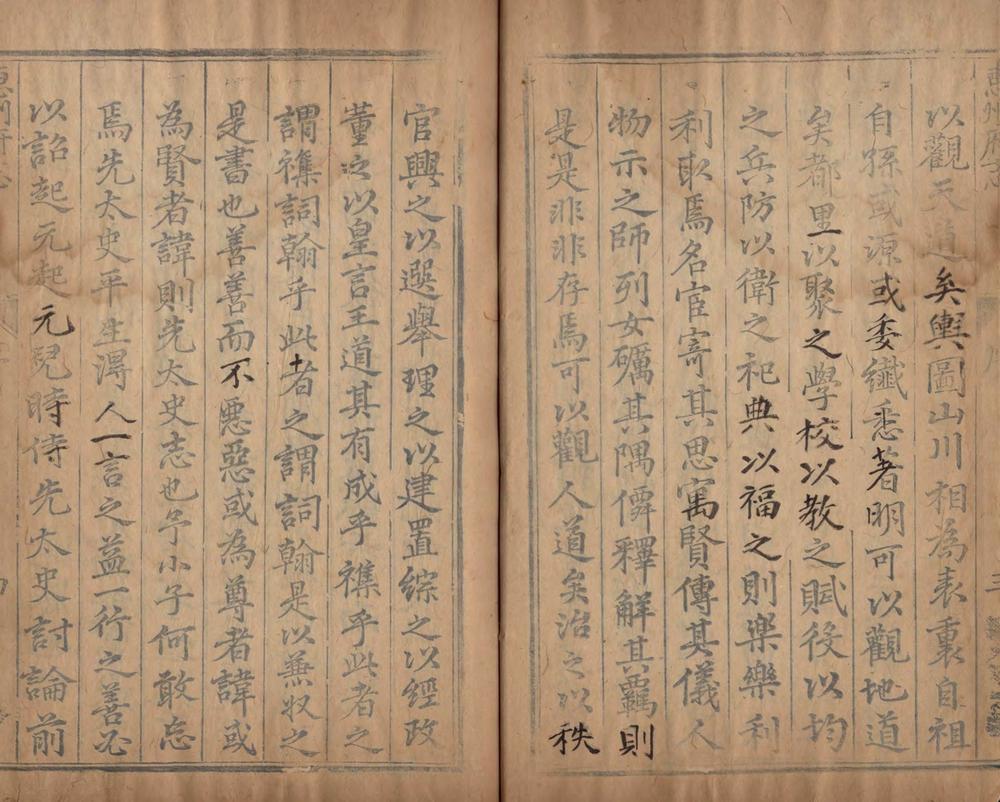 以觀天道矣輿圖山川相為表裏自祖
自孫或源或委纖悉著明可以觀地道
矣都里以聚之學校以教之賦役以均
之兵防以衛之祀典以福之則樂樂利
利耴焉名宦寄其思寓賢傳其儀人
物示之師列女礪其隅僊釋解其覊則
是是非非存焉可以觀人道矣治之以秩
官興之以選舉理之以建置綜之以經政
董之以皇言王道其有成乎襍乎此者之
謂襍詞翰乎此者之謂詞翰是以兼收之
是書也善善而不惡惡或為尊者諱或
為賢者諱則先太史志也予小子何敢忘
焉先太史平生淂人一言之益一行之善必
以詔起元起元兒時侍先太史討論前